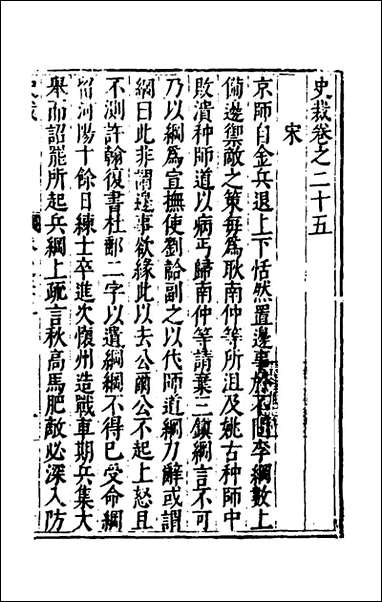 史裁卷之二十五
宋
京師自金兵退上下恬然置邊事於不問李綱數上
備邊禦敵之策每爲耿南仲等所沮及姚古种師中
敗潰种師道以病丐歸南仲等請棄三鎮綱言不可
乃以綱爲宣撫使劉韐副之以代師道綱力辭或謂
綱曰此非謂邊事欲緣此以去公爾公不起上怒且
不測許翰復書杜郵二字以遺綱綱不得已受命綱
留河陽十餘日練士卒進次懷州造戰車期兵集大
舉而詔罷所起兵綱上疏言秋高馬肥敵必深入防